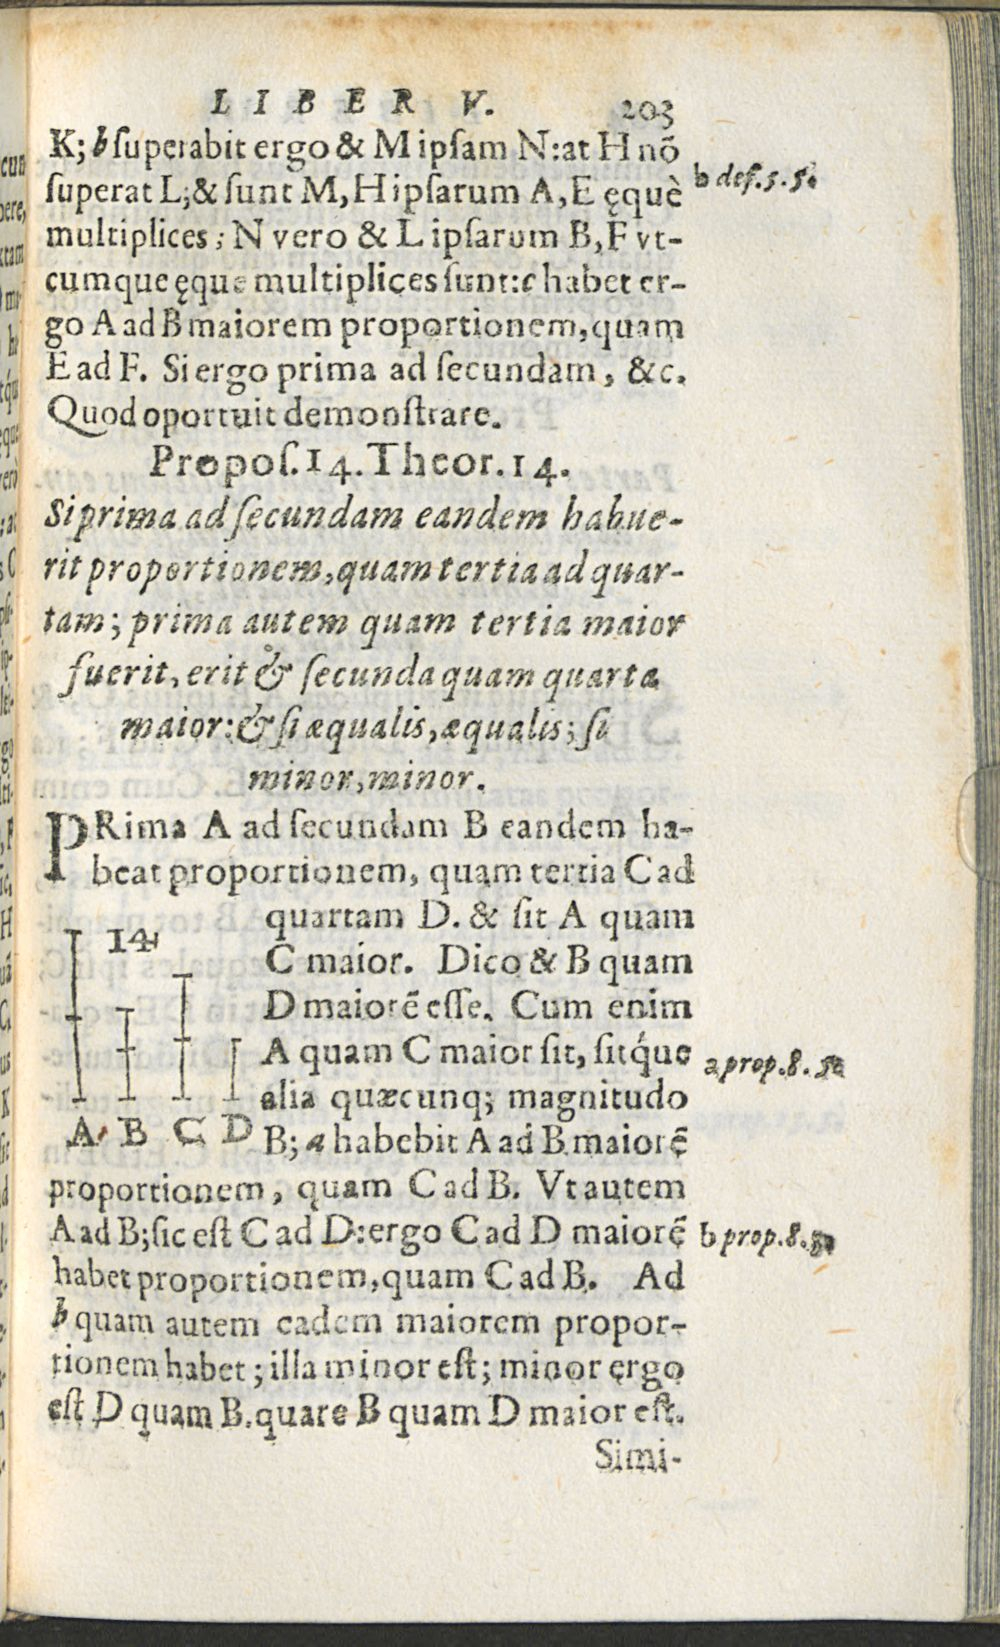 LIBER V. 203
K; b ſuperabit ergo & M ipſam N: at H nõ
ſuperat L; & ſunt M, H ipſarum A, E ęquè
b def. 5. 5.
multiplices; N vero & L ipſarum B, F vt-
cumque ęque multiplices ſunt: c habet er-
go A ad B maiorem proportionem, quam
E ad F. Si ergo prima ad ſecundam, &c.
Quod oportuit demonſtrare.
Propoſ. 14. Theor. 14.
Si prima ad ſecundam eandem habue-
rit proportionem, quam tertia ad quar-
tam; prima autem quam tertia maior
fuerit, erit & ſecunda quam quarta
maior: & ſi æqualis, æqualis; ſi
minor, minor.
PRima A ad ſecundam B eandem ha-
beat proportionem, quam tertia C ad
quartam D. & ſit A quam
C maior. Dico & B quam
D maiorẽ eſſe. Cum enim
A quam C maior ſit, ſitq́ue
a prop. 8. 5.
alia quæcunq; magnitudo
B; a habebit A ad B maiorẽ
14
A B C D
proportionem, quam C ad B. Vt autem
A ad B; ſic eſt C ad D: ergo C ad D maiorẽ
b prop. 8. 5.
habet proportionem, quam C ad B. Ad
b quam autem eadem maiorem propor-
tionem habet; illa minor eſt; minor ergo
eſt D quam B. quare B quam D maior eſt.
Simi-